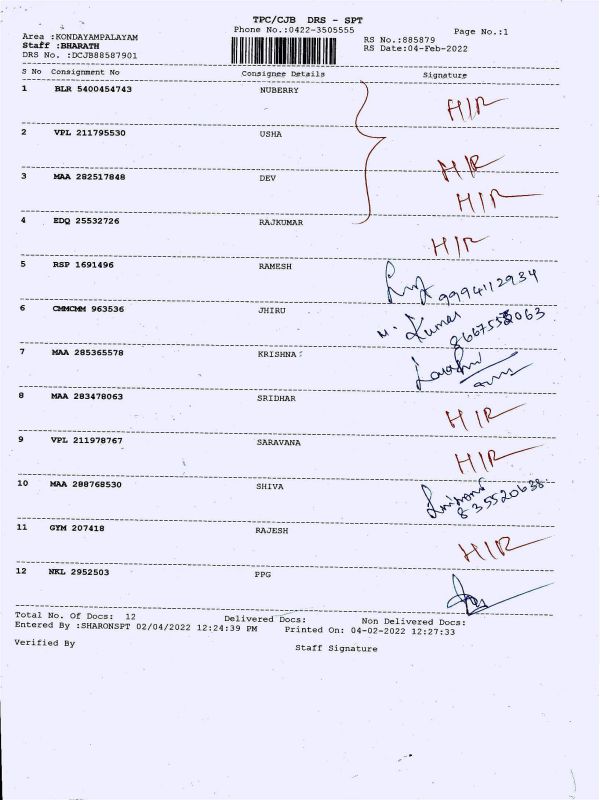 TPC/CJB DRS - SPT
Phone No.:0422-3505555
Page No.:1
Area :KONDAYAMPALAYAM
Staff :BHARATH
DRS No. :DCJB88587901
RS No.:885879
RS Date:04-Feb-2022
S No Consignment No Consignee Details Signature
1 BLR 5400454743 NUBERRY H/R
2 VPL 211795530 USHA H/R
3 MAA 282517848 DEV H/R
4 EDQ 25532726 RAJKUMAR H/R
5 RSP 1691496 RAMESH 9994112934
6 CMMCMM 963536 JHIRU M. Kumar
7 MAA 285365578 KRISHNA
8 MAA 283478063 SRIDHAR H/R
9 VPL 211978767 SARAVANA H/R
10 MAA 288768530 SHIVA
11 GYM 207418 RAJESH H/R
12 NKL 2952503 PPG
Total No. Of Docs: 12 Delivered Docs: Non Delivered Docs:
Entered By :SHARONSPT 02/04/2022 12:24:39 PM Printed On: 04-02-2022 12:27:33
Verified By Staff Signature